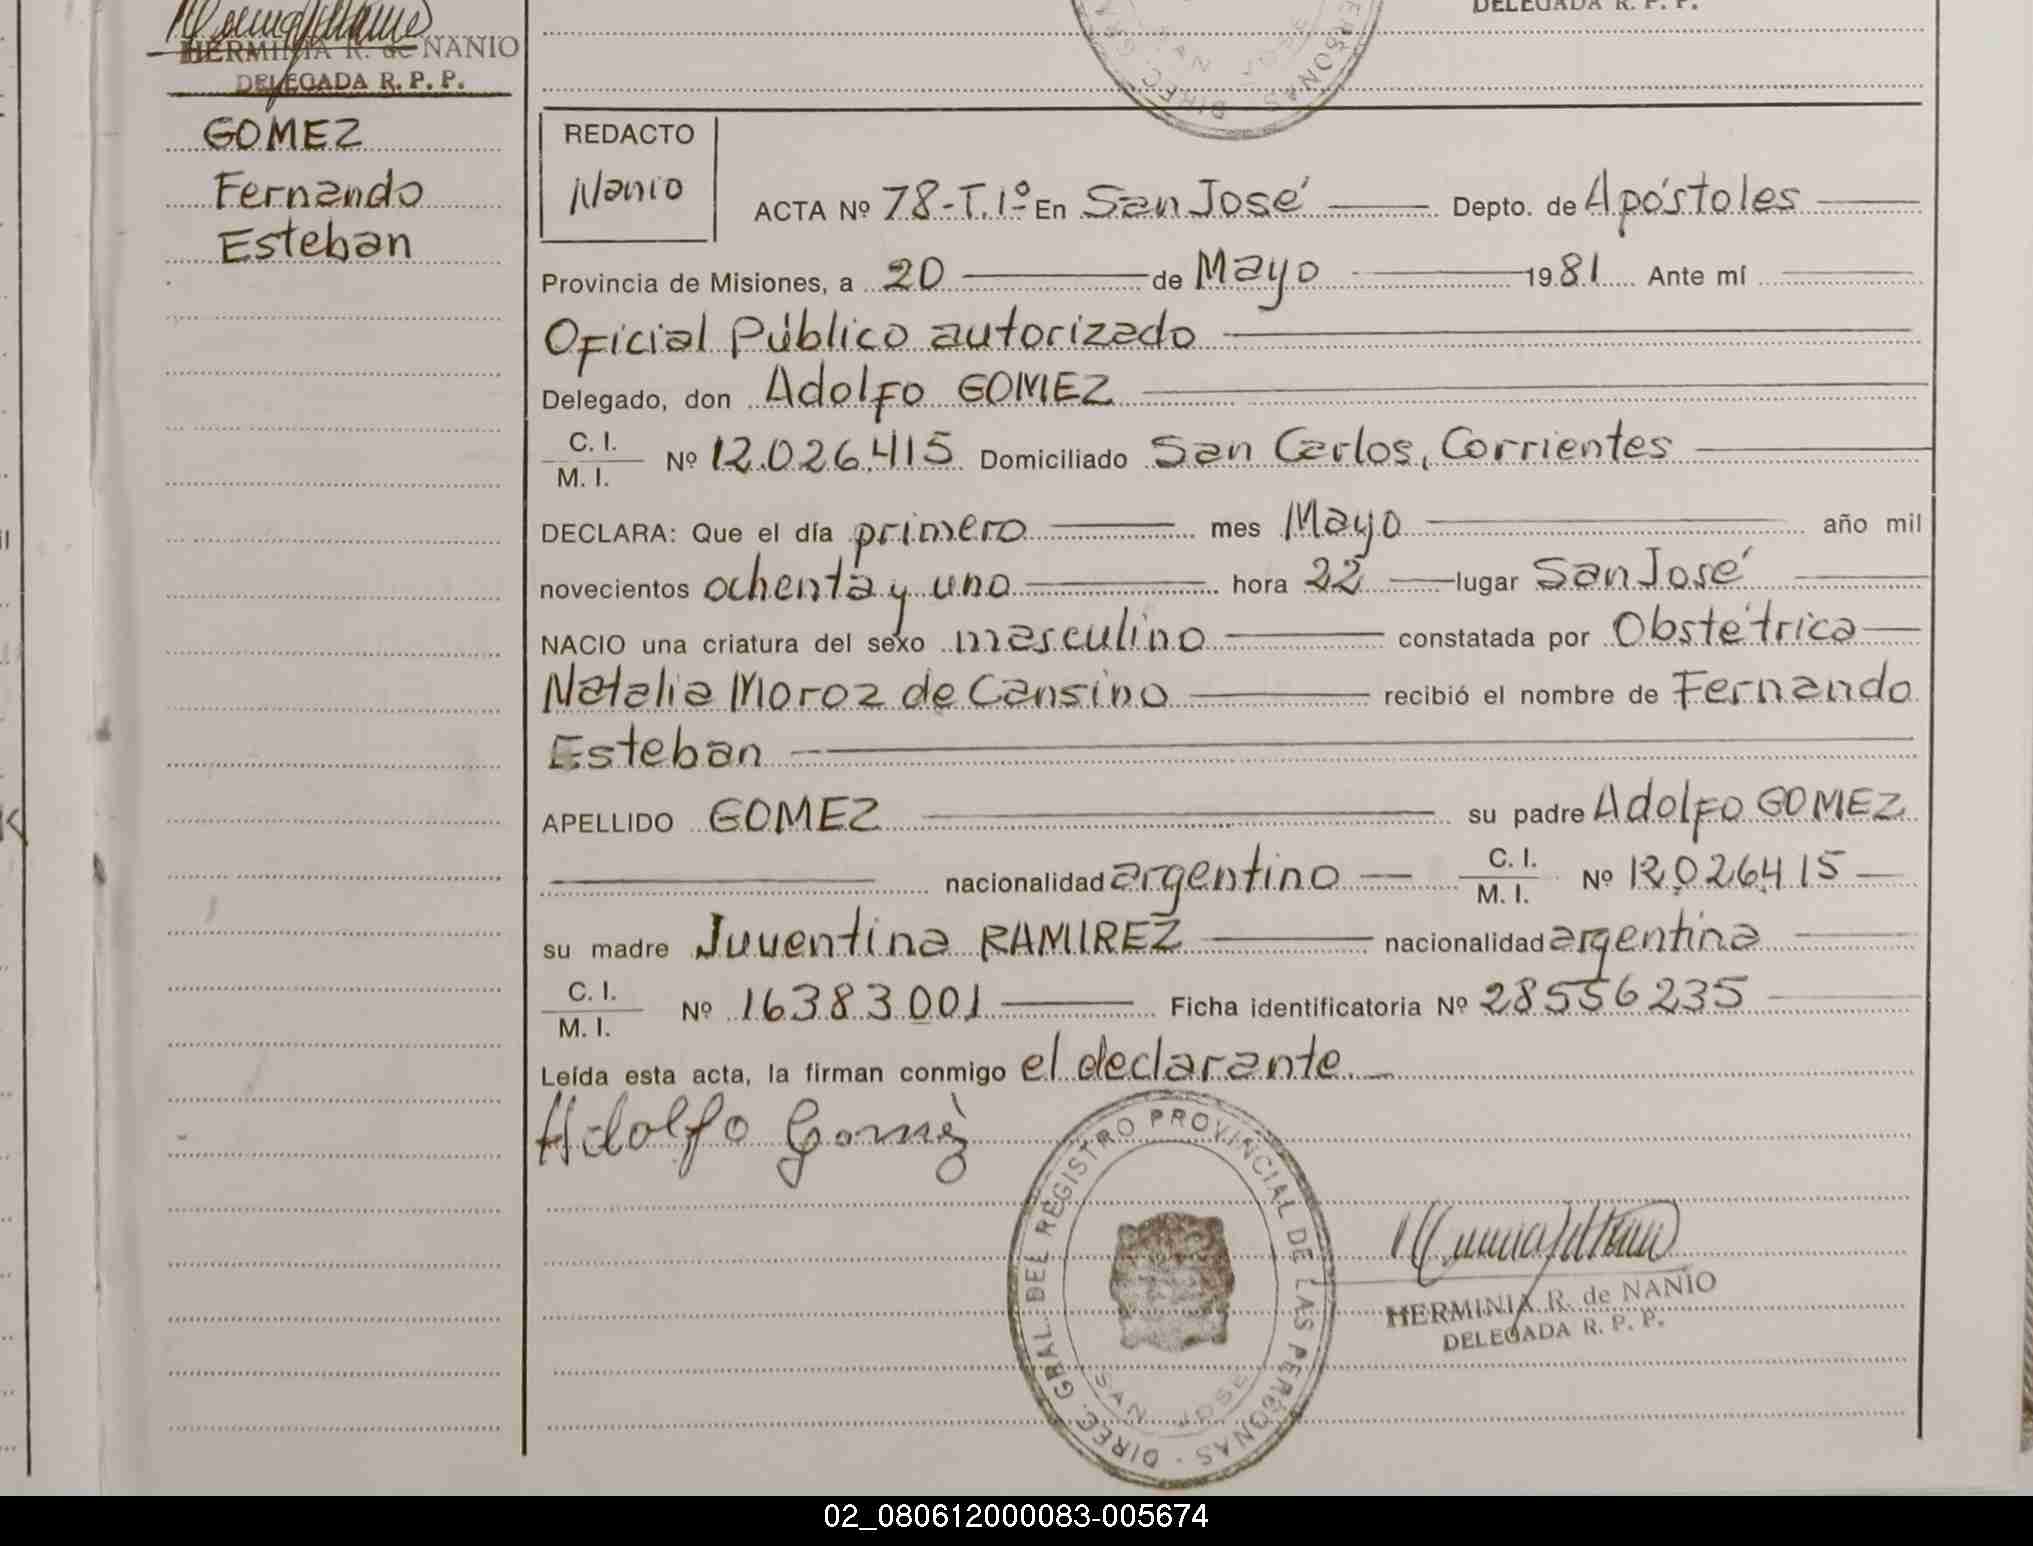 HERMINIA R. de NANIO
DELEGADA R. P. P.
DELEGADA R. P. P.
SAN JOSE
DIREC. GRAL. PERSONAS
GOMEZ
Fernando
Esteban
REDACTO
Nanio
ACTA Nº 78-T.1º En San José Depto. de Apóstoles
Provincia de Misiones, a 20 de Mayo 1981 Ante mí
Oficial Público autorizado
Delegado, don Adolfo GOMEZ
C. I.
M. I. Nº 12.026.415 Domiciliado San Carlos, Corrientes
DECLARA: Que el día primero mes Mayo año mil
novecientos ochenta y uno hora 22 lugar San José
NACIO una criatura del sexo masculino constatada por Obstétrica
Natalia Moroz de Cansino recibió el nombre de Fernando
Esteban
APELLIDO GOMEZ su padre Adolfo GOMEZ
nacionalidad argentino C. I.
M. I. Nº 12.026.415
su madre Juventina RAMIREZ nacionalidad argentina
C. I.
M. I. Nº 16383001 Ficha identificatoria Nº 28556235
Leída esta acta, la firman conmigo el declarante.
Adolfo Gomez
DIREC. GRAL. DEL REGISTRO PROVINCIAL DE LAS PERSONAS
SAN JOSE
HERMINIA R. de NANIO
DELEGADA R. P. P.
02_080612000083-005674